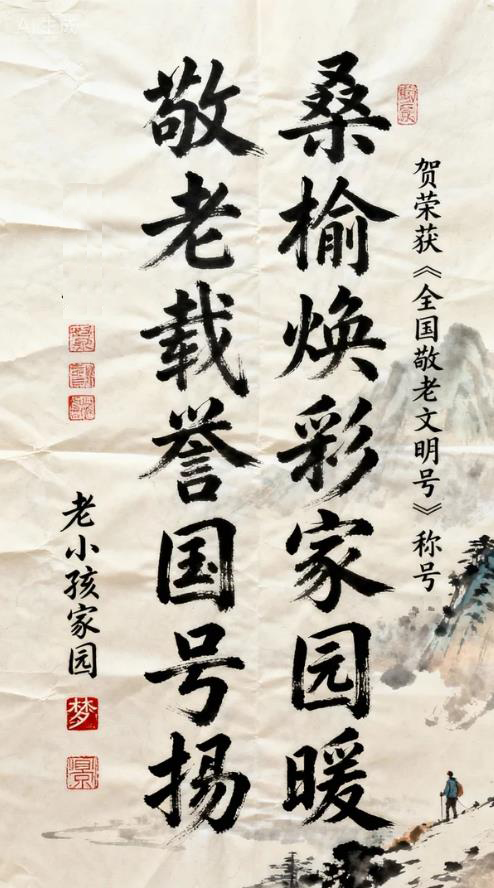 贺荣获《全国敬老文明号》称号
桑榆焕彩家园暖
敬老载誉国号扬
老小孩家园
梦
AI生成